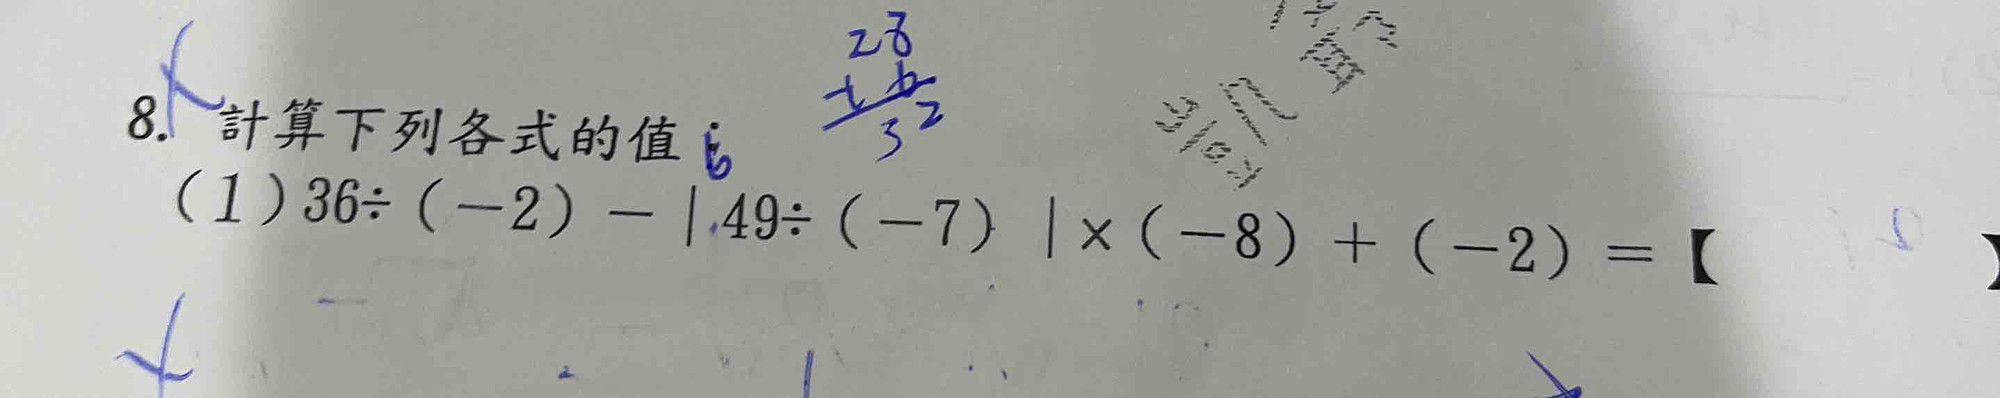 28
+ 6
32
8. 計算下列各式的值:
(1)36÷(-2)-|49÷(-7)|×(-8)+(-2)=【 】